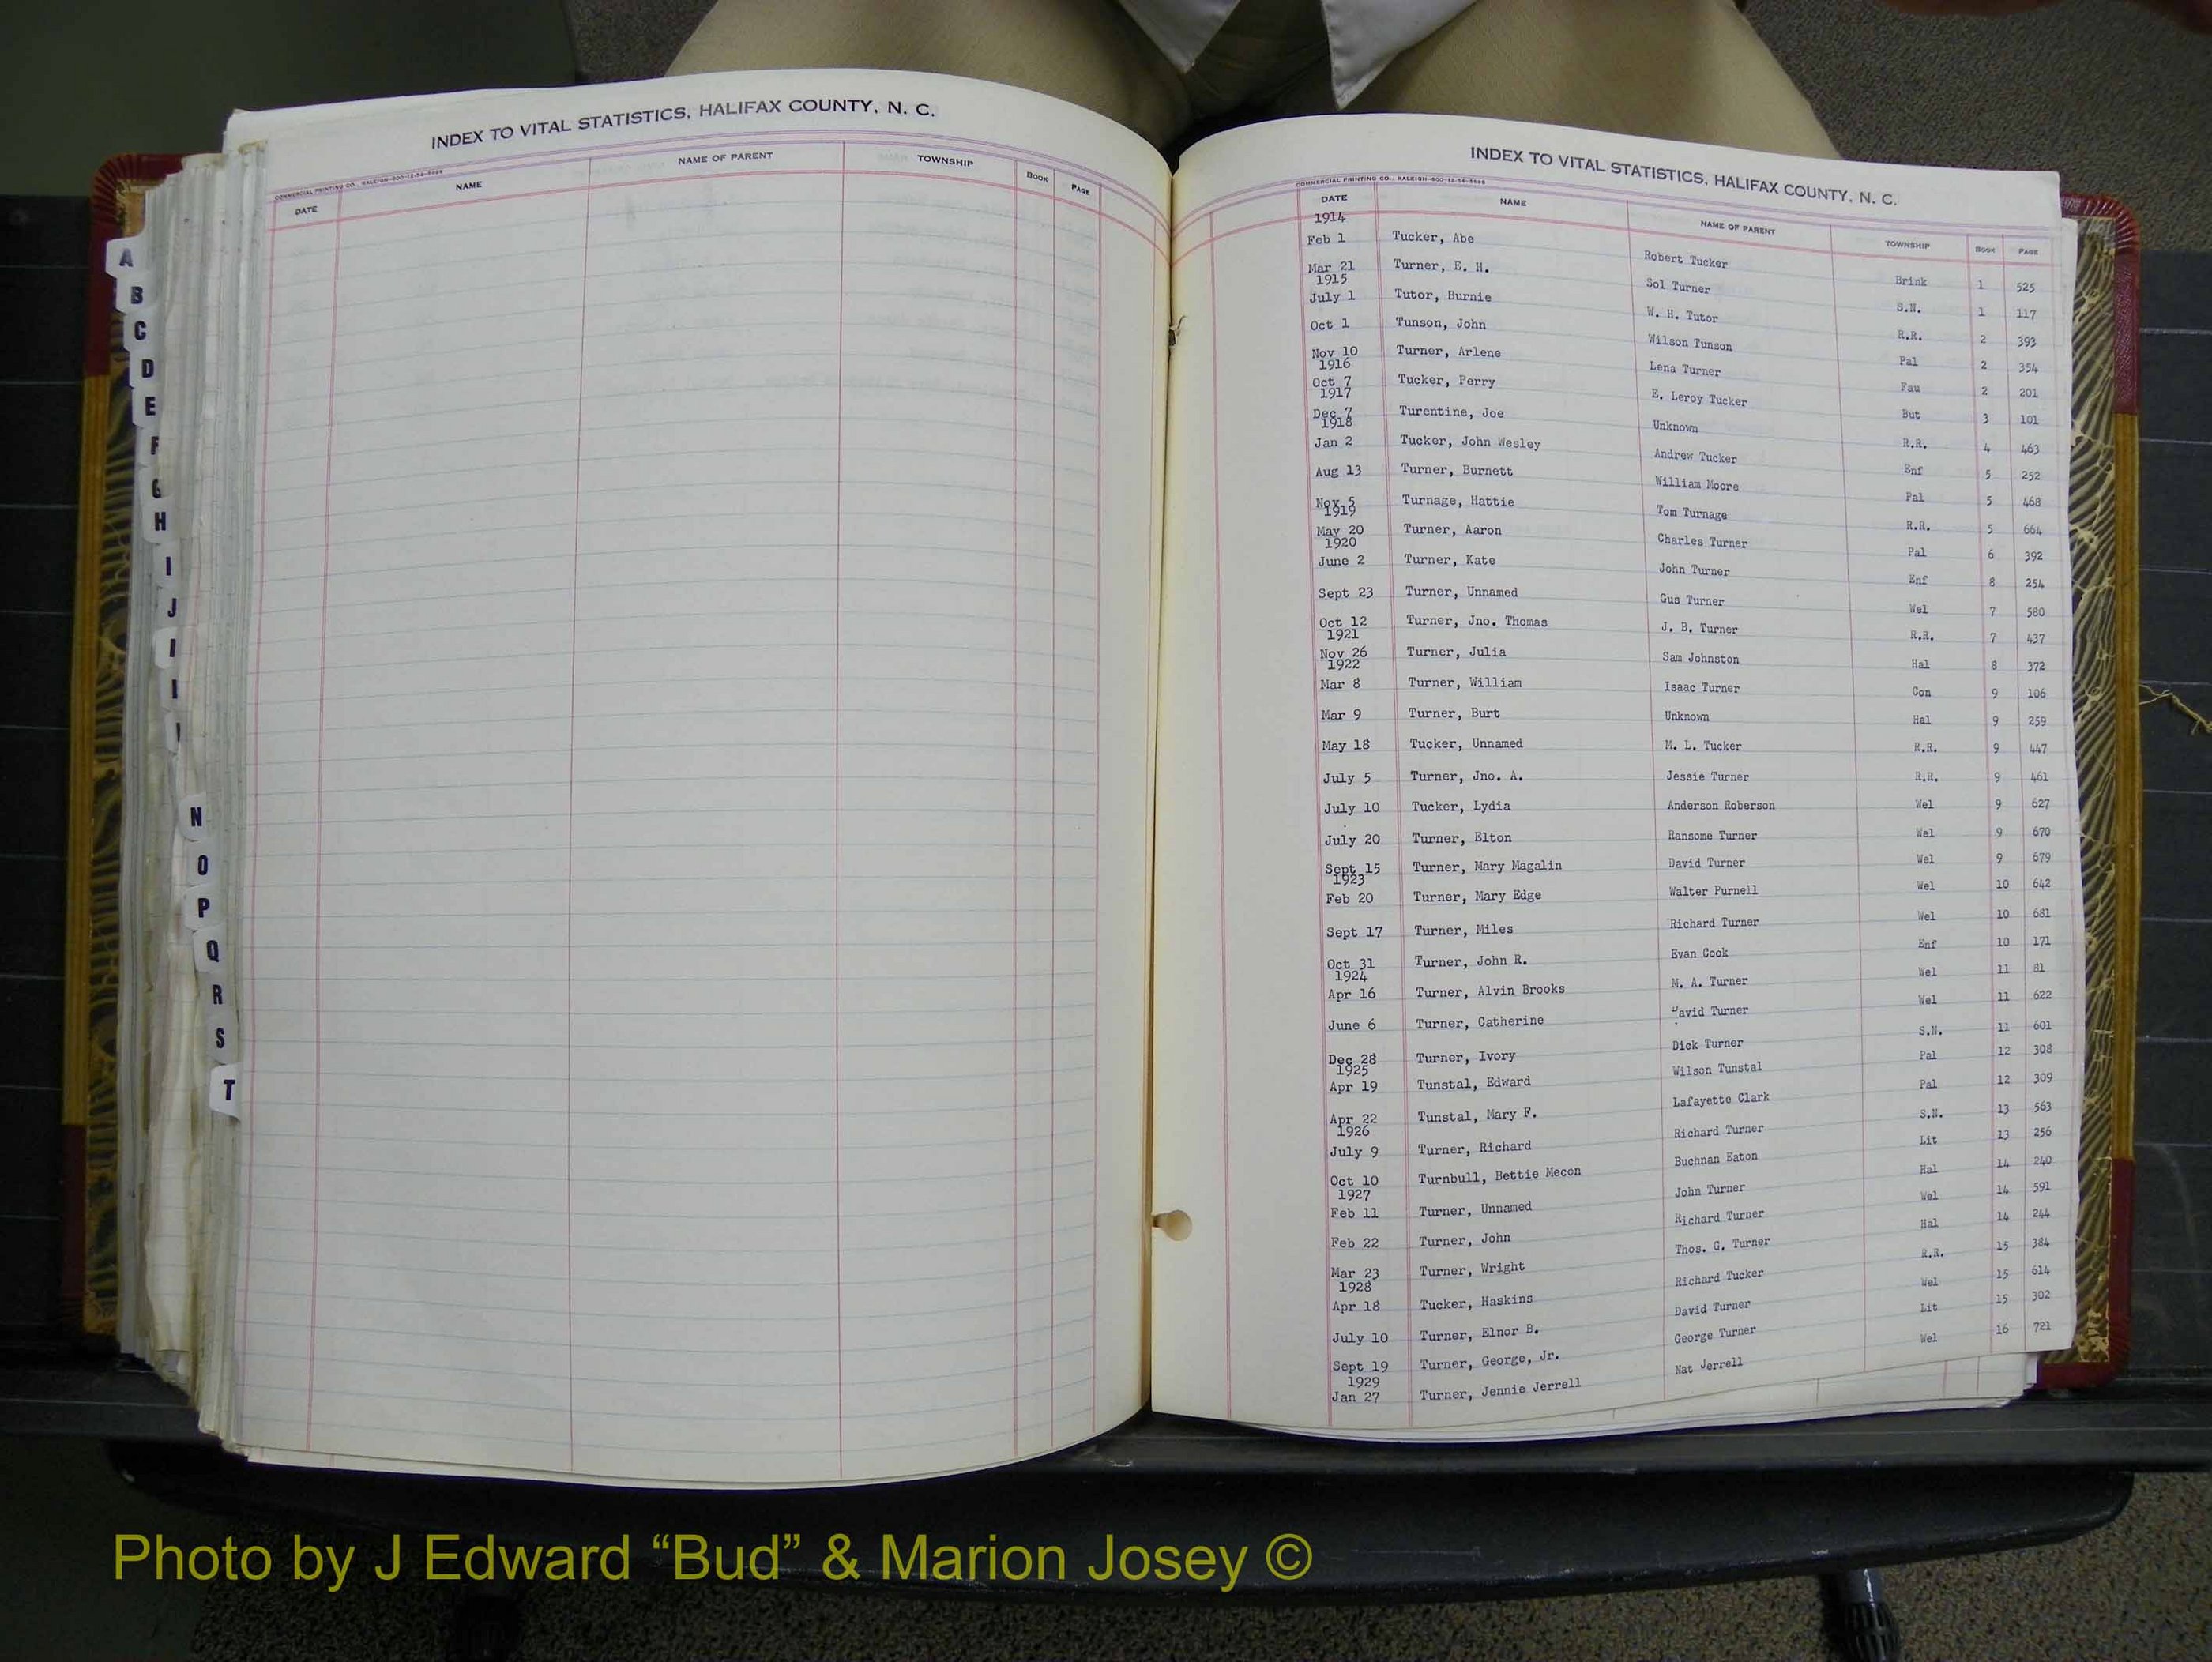 INDEX TO VITAL STATISTICS, HALIFAX COUNTY, N. C.
COMMERCIAL PRINTING CO., RALEIGH-600-12-54-5498
DATE NAME NAME OF PARENT TOWNSHIP BOOK PAGE
A
B
C
D
E
F
G
H
I
J
N
O
P
Q
R
S
T
INDEX TO VITAL STATISTICS, HALIFAX COUNTY, N. C.
COMMERCIAL PRINTING CO., RALEIGH-600-12-54-5498
DATE NAME NAME OF PARENT TOWNSHIP BOOK PAGE
1914
Feb 1 Tucker, Abe Robert Tucker Brink 1 525
Mar 21 Turner, E. H. Sol Turner S.N. 1 117
1915
July 1 Tutor, Burnie W. H. Tutor R.R. 2 393
Oct 1 Tunson, John Wilson Tunson Pal 2 354
Nov 10 Turner, Arlene Lena Turner Fau 2 201
1916
Oct 7 Tucker, Perry E. Leroy Tucker But 3 101
1917
Dec 7 Turentine, Joe Unknown R.R. 4 463
1918
Jan 2 Tucker, John Wesley Andrew Tucker Enf 5 252
Aug 13 Turner, Burnett William Moore Pal 5 468
Nov 5 Turnage, Hattie Tom Turnage R.R. 5 664
1919
May 20 Turner, Aaron Charles Turner Pal 6 392
1920
June 2 Turner, Kate John Turner Enf 8 254
Sept 23 Turner, Unnamed Gus Turner Wel 7 580
Oct 12 Turner, Jno. Thomas J. B. Turner R.R. 7 437
1921
Nov 26 Turner, Julia Sam Johnston Hal 8 372
1922
Mar 8 Turner, William Isaac Turner Con 9 106
Mar 9 Turner, Burt Unknown Hal 9 259
May 18 Tucker, Unnamed M. L. Tucker R.R. 9 447
July 5 Turner, Jno. A. Jessie Turner R.R. 9 461
July 10 Tucker, Lydia Anderson Roberson Wel 9 627
July 20 Turner, Elton Ransome Turner Wel 9 670
Sept 15 Turner, Mary Magalin David Turner Wel 9 679
1923
Feb 20 Turner, Mary Edge Walter Purnell Wel 10 642
Sept 17 Turner, Miles Richard Turner Wel 10 681
Oct 31 Turner, John R. Evan Cook Enf 10 171
1924
Apr 16 Turner, Alvin Brooks M. A. Turner Wel 11 81
June 6 Turner, Catherine David Turner Wel 11 622
Dec 28 Turner, Ivory Dick Turner S.N. 11 601
1925
Apr 19 Tunstal, Edward Wilson Tunstal Pal 12 308
Apr 22 Tunstal, Mary F. Lafayette Clark Pal 12 309
1926
July 9 Turner, Richard Richard Turner S.N. 13 563
Oct 10 Turnbull, Bettie Mecon Buchnan Eaton Lit 13 256
1927
Feb 11 Turner, Unnamed John Turner Hal 14 240
Feb 22 Turner, John Richard Turner Wel 14 591
Mar 23 Turner, Wright Thos. G. Turner Hal 14 244
1928
Apr 18 Tucker, Haskins Richard Tucker R.R. 15 384
July 10 Turner, Elnor B. David Turner Wel 15 614
Sept 19 Turner, George, Jr. George Turner Lit 15 302
1929
Jan 27 Turner, Jennie Jerrell Nat Jerrell Wel 16 721
Photo by J Edward “Bud” & Marion Josey ©